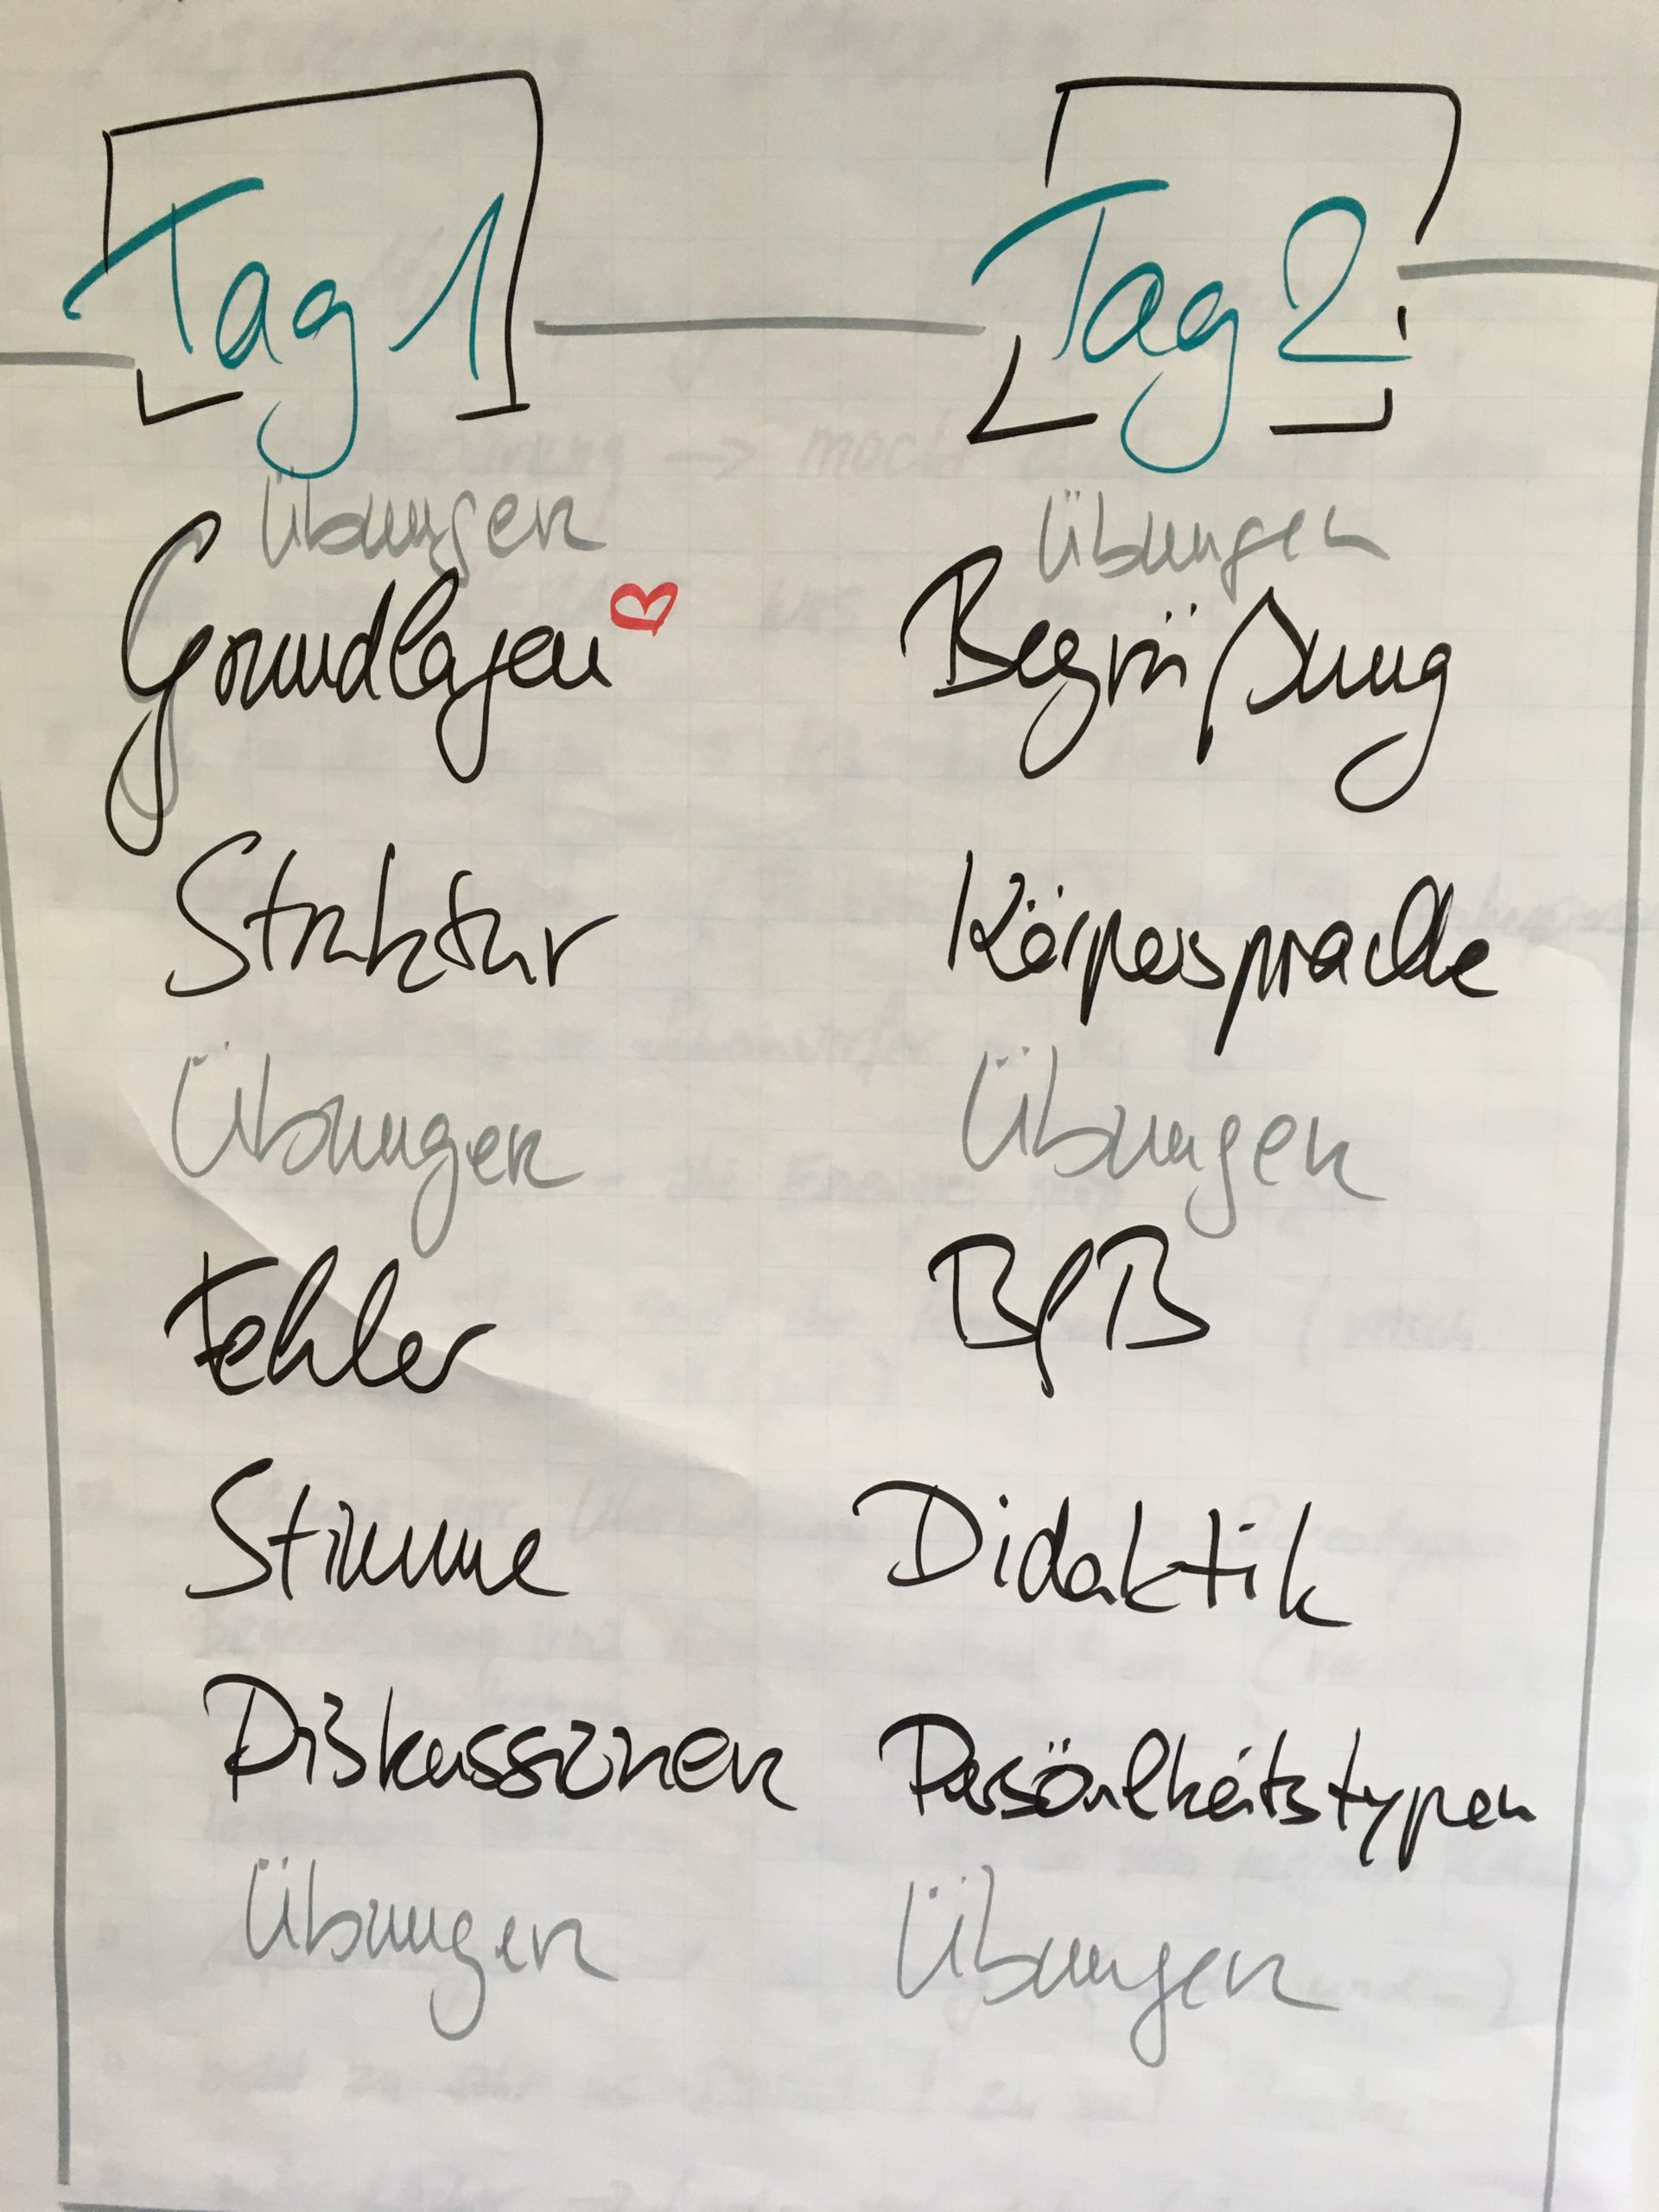 Tag 1
Übungen
Grundlagen
Struktur
Übungen
Fehler
Stimme
Diskussionen
Übungen
Tag 2
Übungen
Begrüßung
Körpersprache
Übungen
BfB
Didaktik
Persönlkeitstypen
Übungen